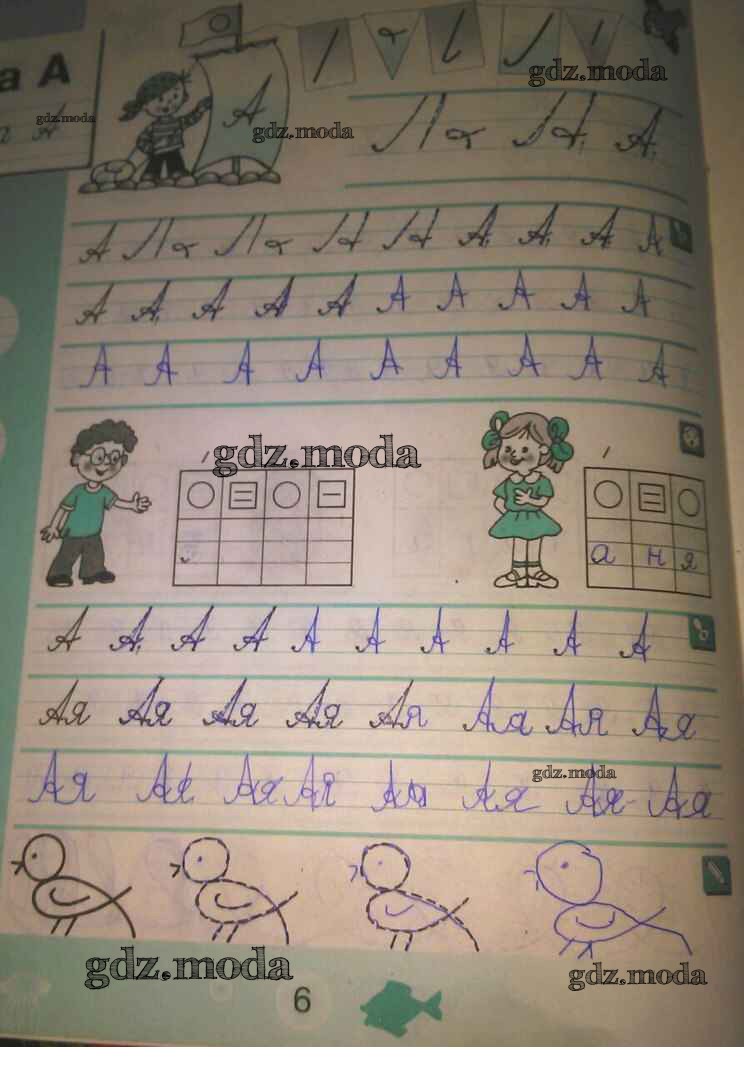 а А
а А
gdz.moda
А
gdz.moda
gdz.moda
А
А А А А А
А А А А А А А А А А
А А А А А А А А А
gdz.moda
а н я
А А А А А А А А А А
Ая Ая Ая Ая Ая Ая Ая Ая
Ая Ая Ая Ая Ая Ая Ая Ая
gdz.moda
gdz.moda
6
gdz.moda